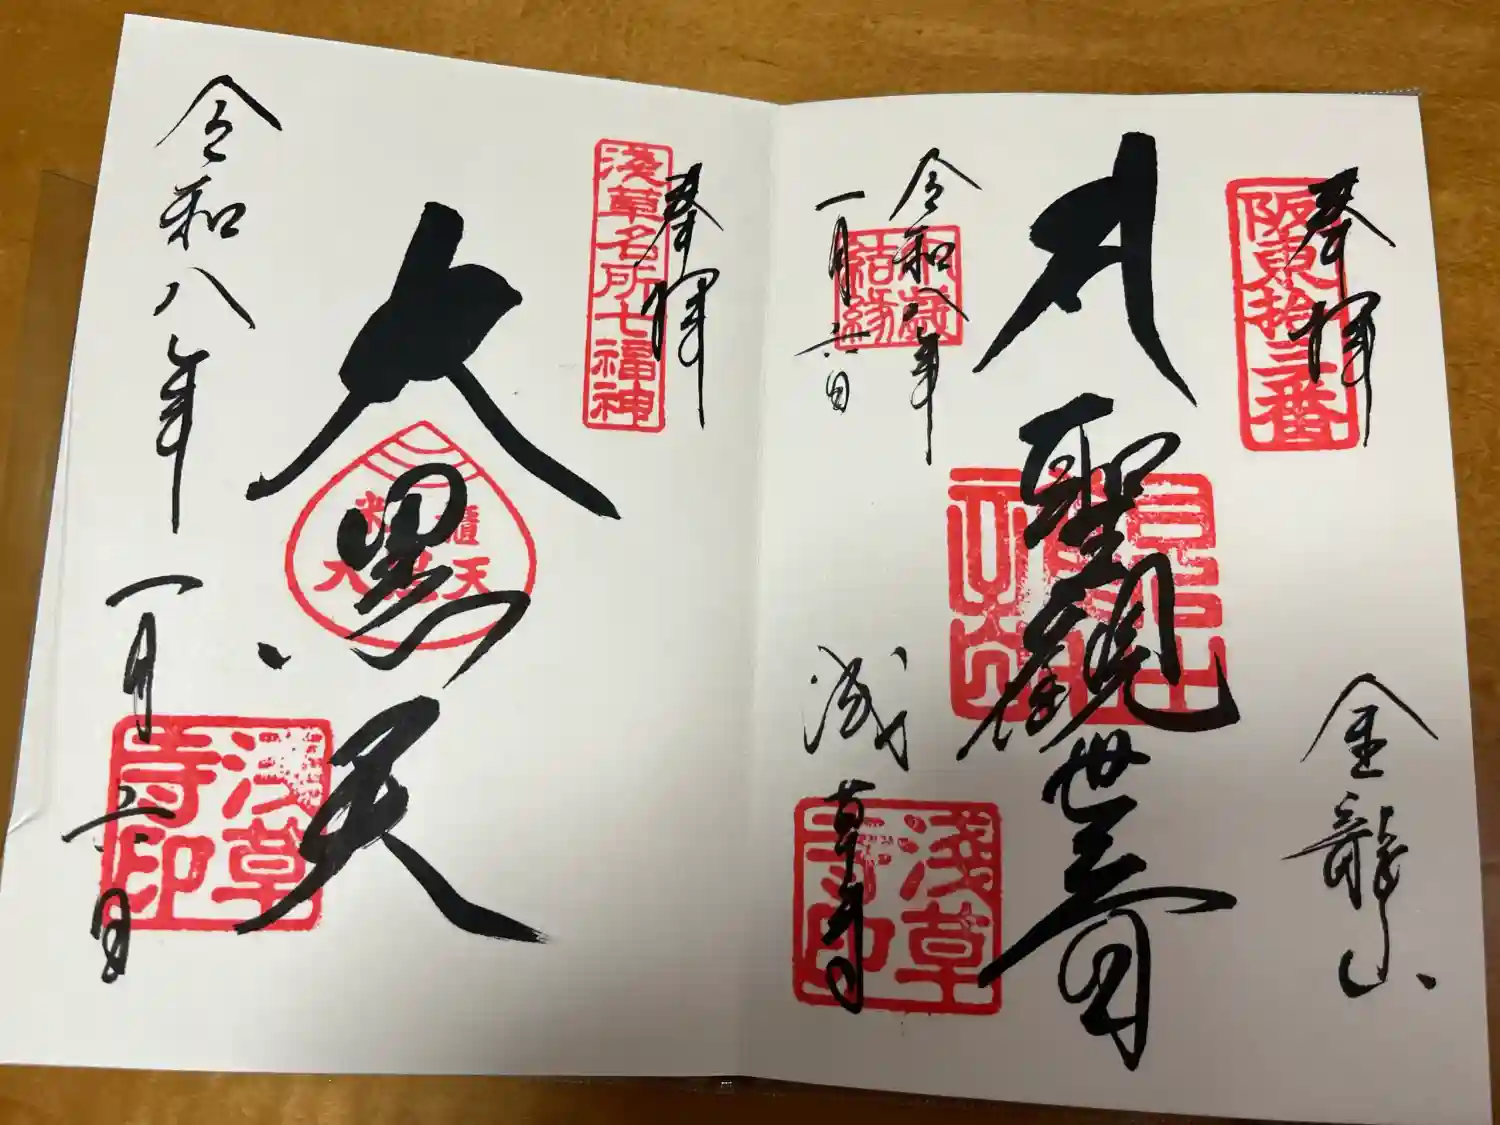 奉拝
阪東拾三番
金龍山
聖観世音
令和八年
一月六日
浅草寺
淺草寺印
奉拝
浅草名所七福神
大黒天
米櫃
大黒天
令和八年
一月六日
浅草寺印